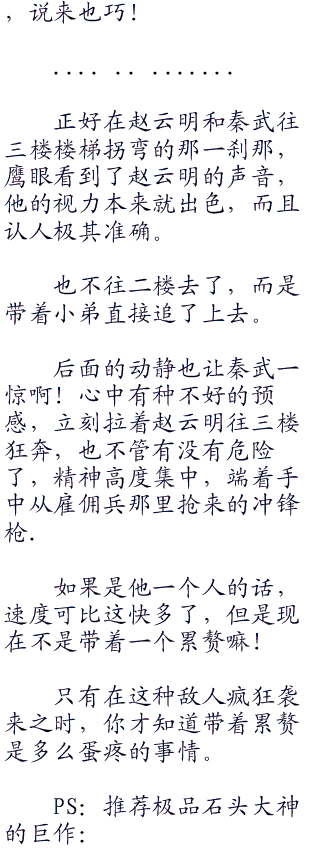 ，说来也巧！
.... .. .......
正好在赵云明和秦武往
三楼楼梯拐弯的那一刹那，
鹰眼看到了赵云明的声音，
他的视力本来就出色，而且
认人极其准确。
也不往二楼去了，而是
带着小弟直接追了上去。
后面的动静也让秦武一
惊啊！心中有种不好的预
感，立刻拉着赵云明往三楼
狂奔，也不管有没有危险
了，精神高度集中，端着手
中从雇佣兵那里抢来的冲锋
枪.
如果是他一个人的话，
速度可比这快多了，但是现
在不是带着一个累赘嘛！
只有在这种敌人疯狂袭
来之时，你才知道带着累赘
是多么蛋疼的事情。
PS：推荐极品石头大神
的巨作：